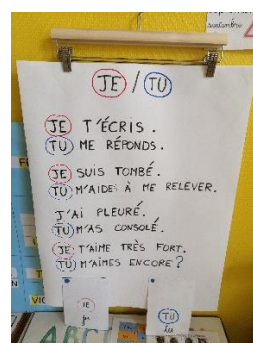 septembre
JE / TU
JE T'ÉCRIS.
TU ME RÉPONDS.
JE SUIS TOMBÉ.
TU M'AIDES À ME RELEVER.
J'AI PLEURÉ.
TU M'AS CONSOLÉ.
JE T'AIME TRÈS FORT.
TU M'AIMES ENCORE?
JE
je
TU
tu
ABC